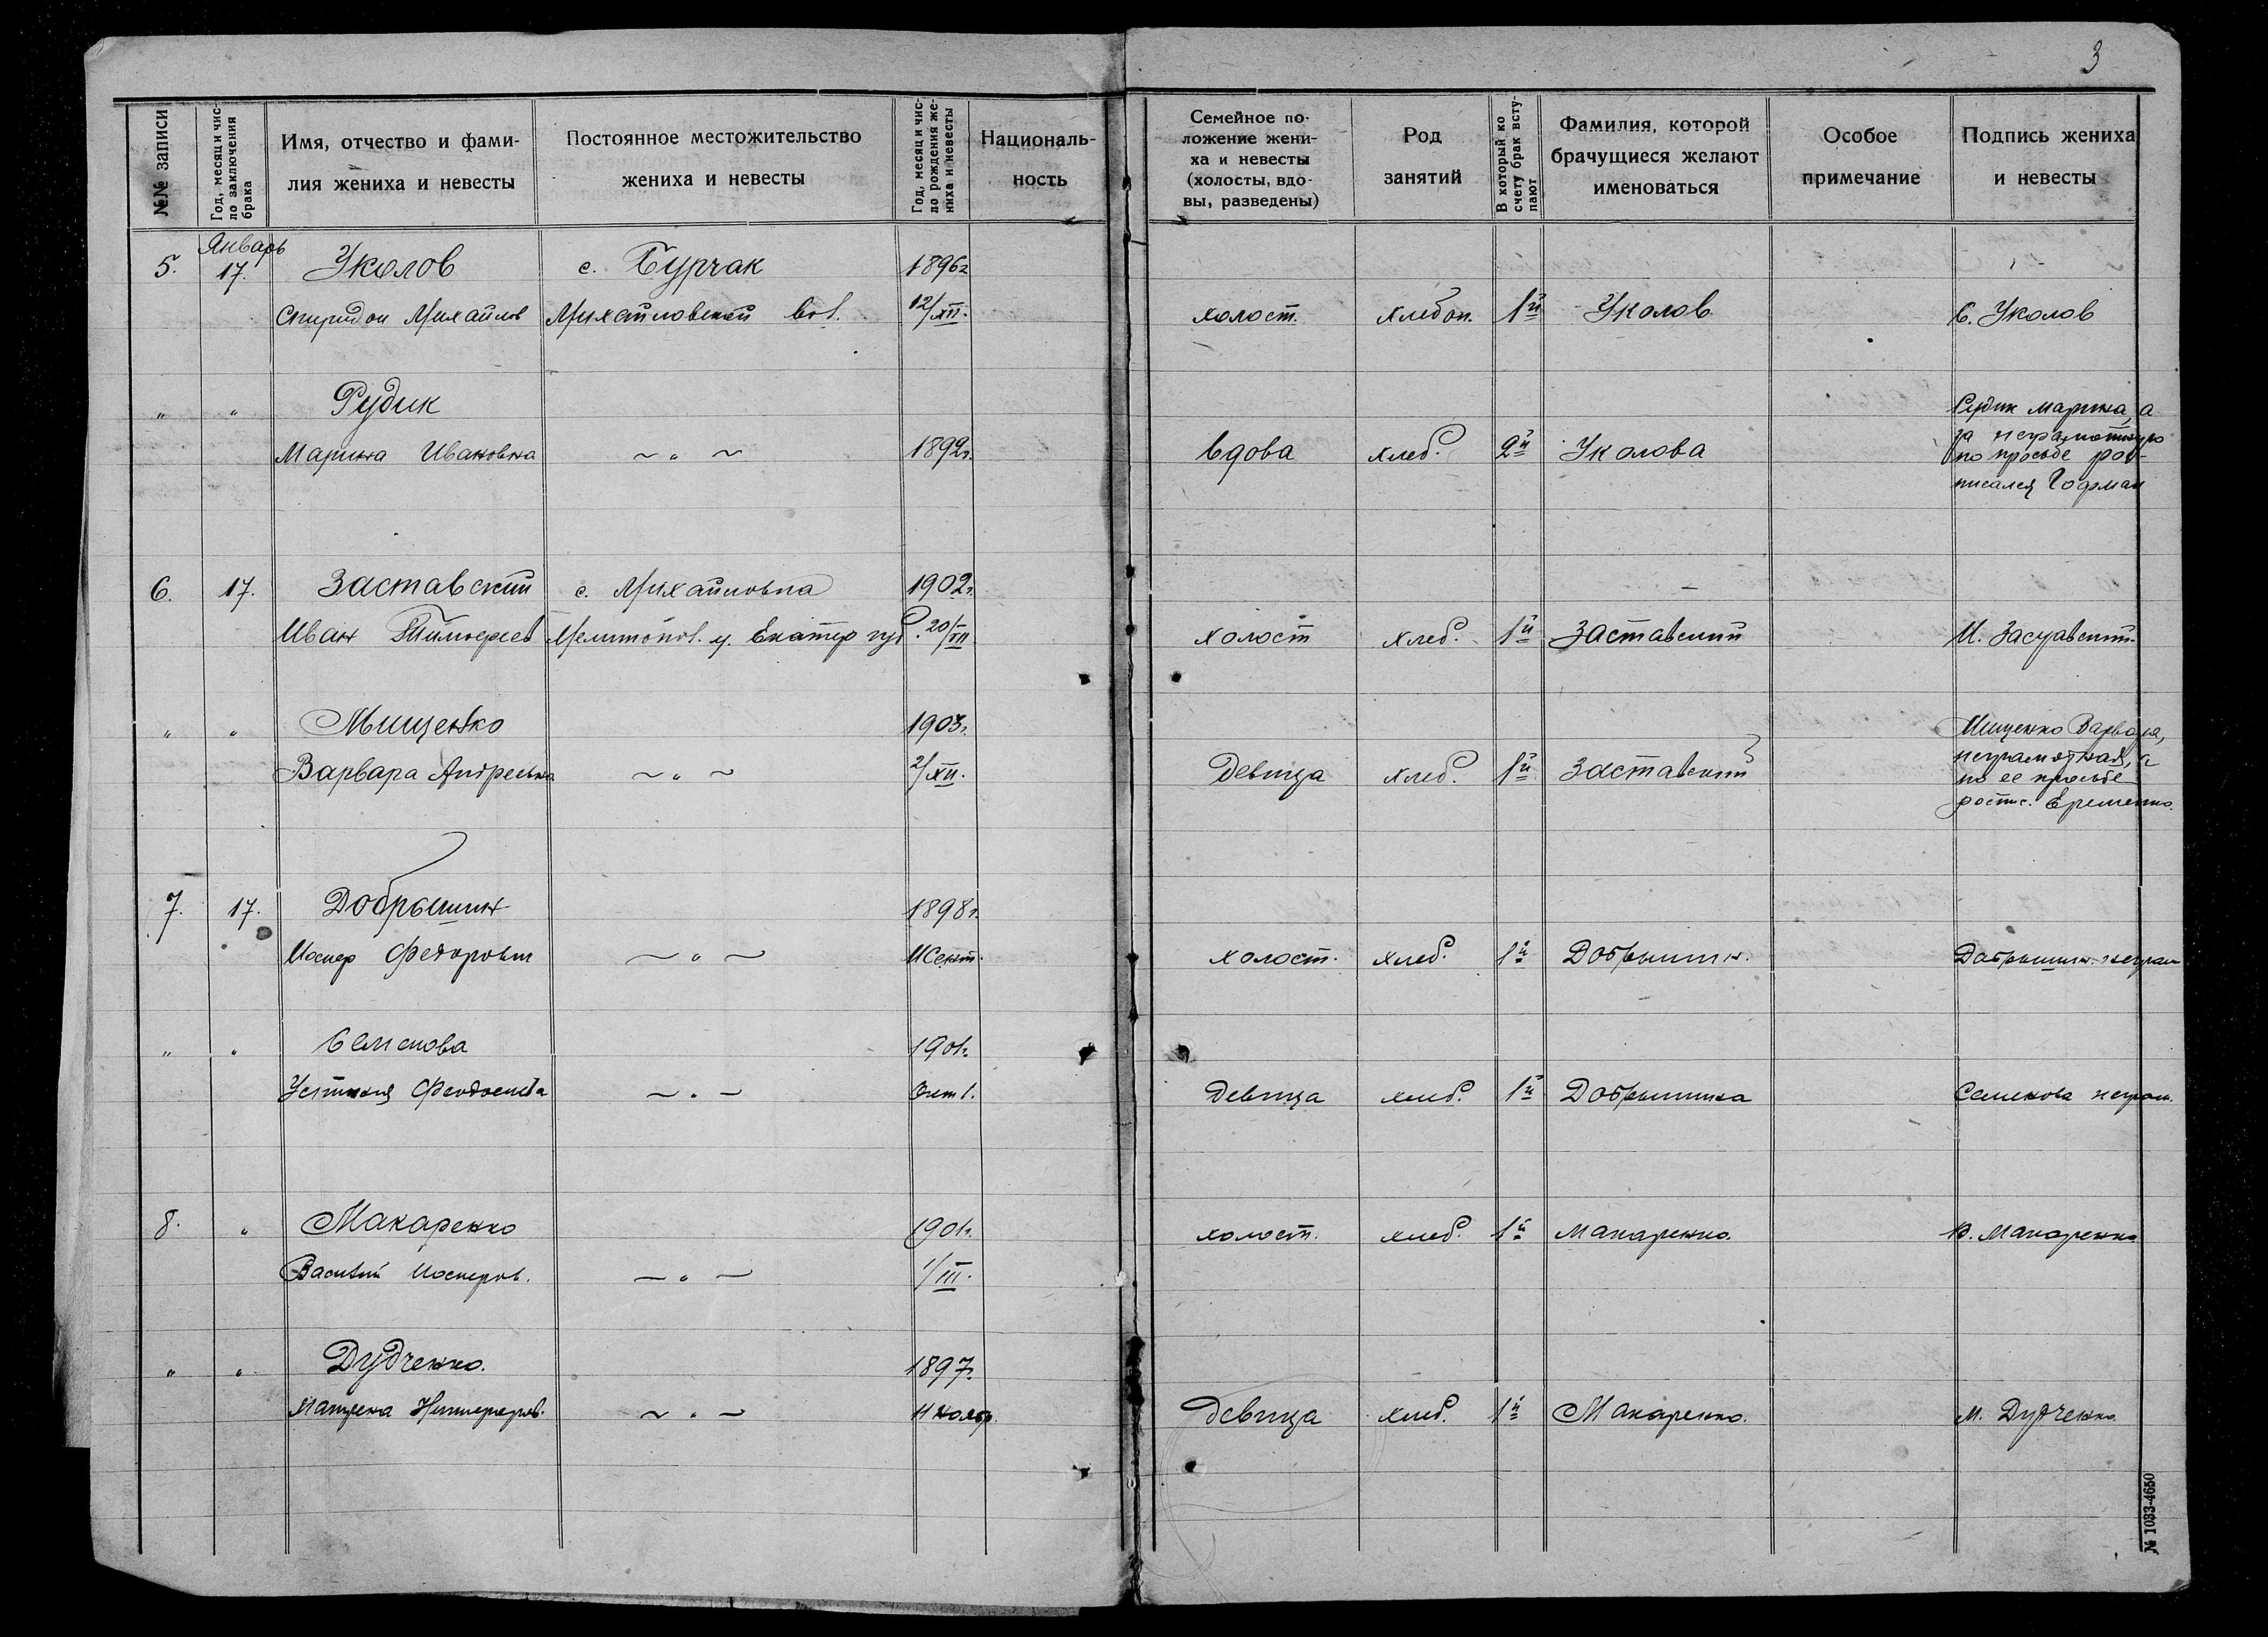 3
№№ записи
Год, месяц и чис-
ло заключения
брака
Имя, отчество и фами-
лия жениха и невесты
Постоянное местожительство
жениха и невесты
Год, месяц и чис-
ло рождения же-
ниха и невесты
Националь-
ность
Семейное по-
ложение жени-
ха и невесты
(холосты, вдо-
вы, разведены)
Род
занятий
В который ко
счету брак всту-
пают
Фамилия, которой
брачущиеся желают
именоваться
Особое
примечание
Подпись жениха
и невесты
Январь
5. 17. Уколов с. Бурчак 1896г.
Спиридон Михайлов Михайловской вол. 12/XII. холост. хлебоп. 1й Уколов С. Уколов
" " Рудик Рудик Марина, а
за неграмотную
Марина Ивановна ~ " ~ 1892г. вдова хлеб. 2й Уколова по просьбе рос-
писался Гофман
6. 17. Заставский с. Михайловка 1902г.
Иван Тимофеев Мелитопол. у. Екатер губ. 20/XII холост хлеб. 1й Заставский И. Заставский
" " Мищенко 1903г. Мищенко Варвара,
неграмотная, а
Варвара Андреевна ~ " ~ 2/XII. девица хлеб. 1й Заставский по ее просьбе
роспис. Еременко.
7. 17. Добрышин 1898г.
Иосиф Федорович ~ " ~ Сент. холост. хлеб. 1й Добрышин. Добрышин неграм
" " Семенова 1901г.
Устиния ~ " ~ девица хлеб. 1й Добрышина Семенова неграм.
8. " Макаренко 1901г. холост. хлеб. 1й Макаренко. В. Макаренко
Василий Иосифов. ~ " ~ 1/III.
" " Дудченко. 1897г.
Матрена Никифоров. ~ " ~ 11 ноябр. девица хлеб. 1й Макаренко. М. Дудченко
№ 1033-4650